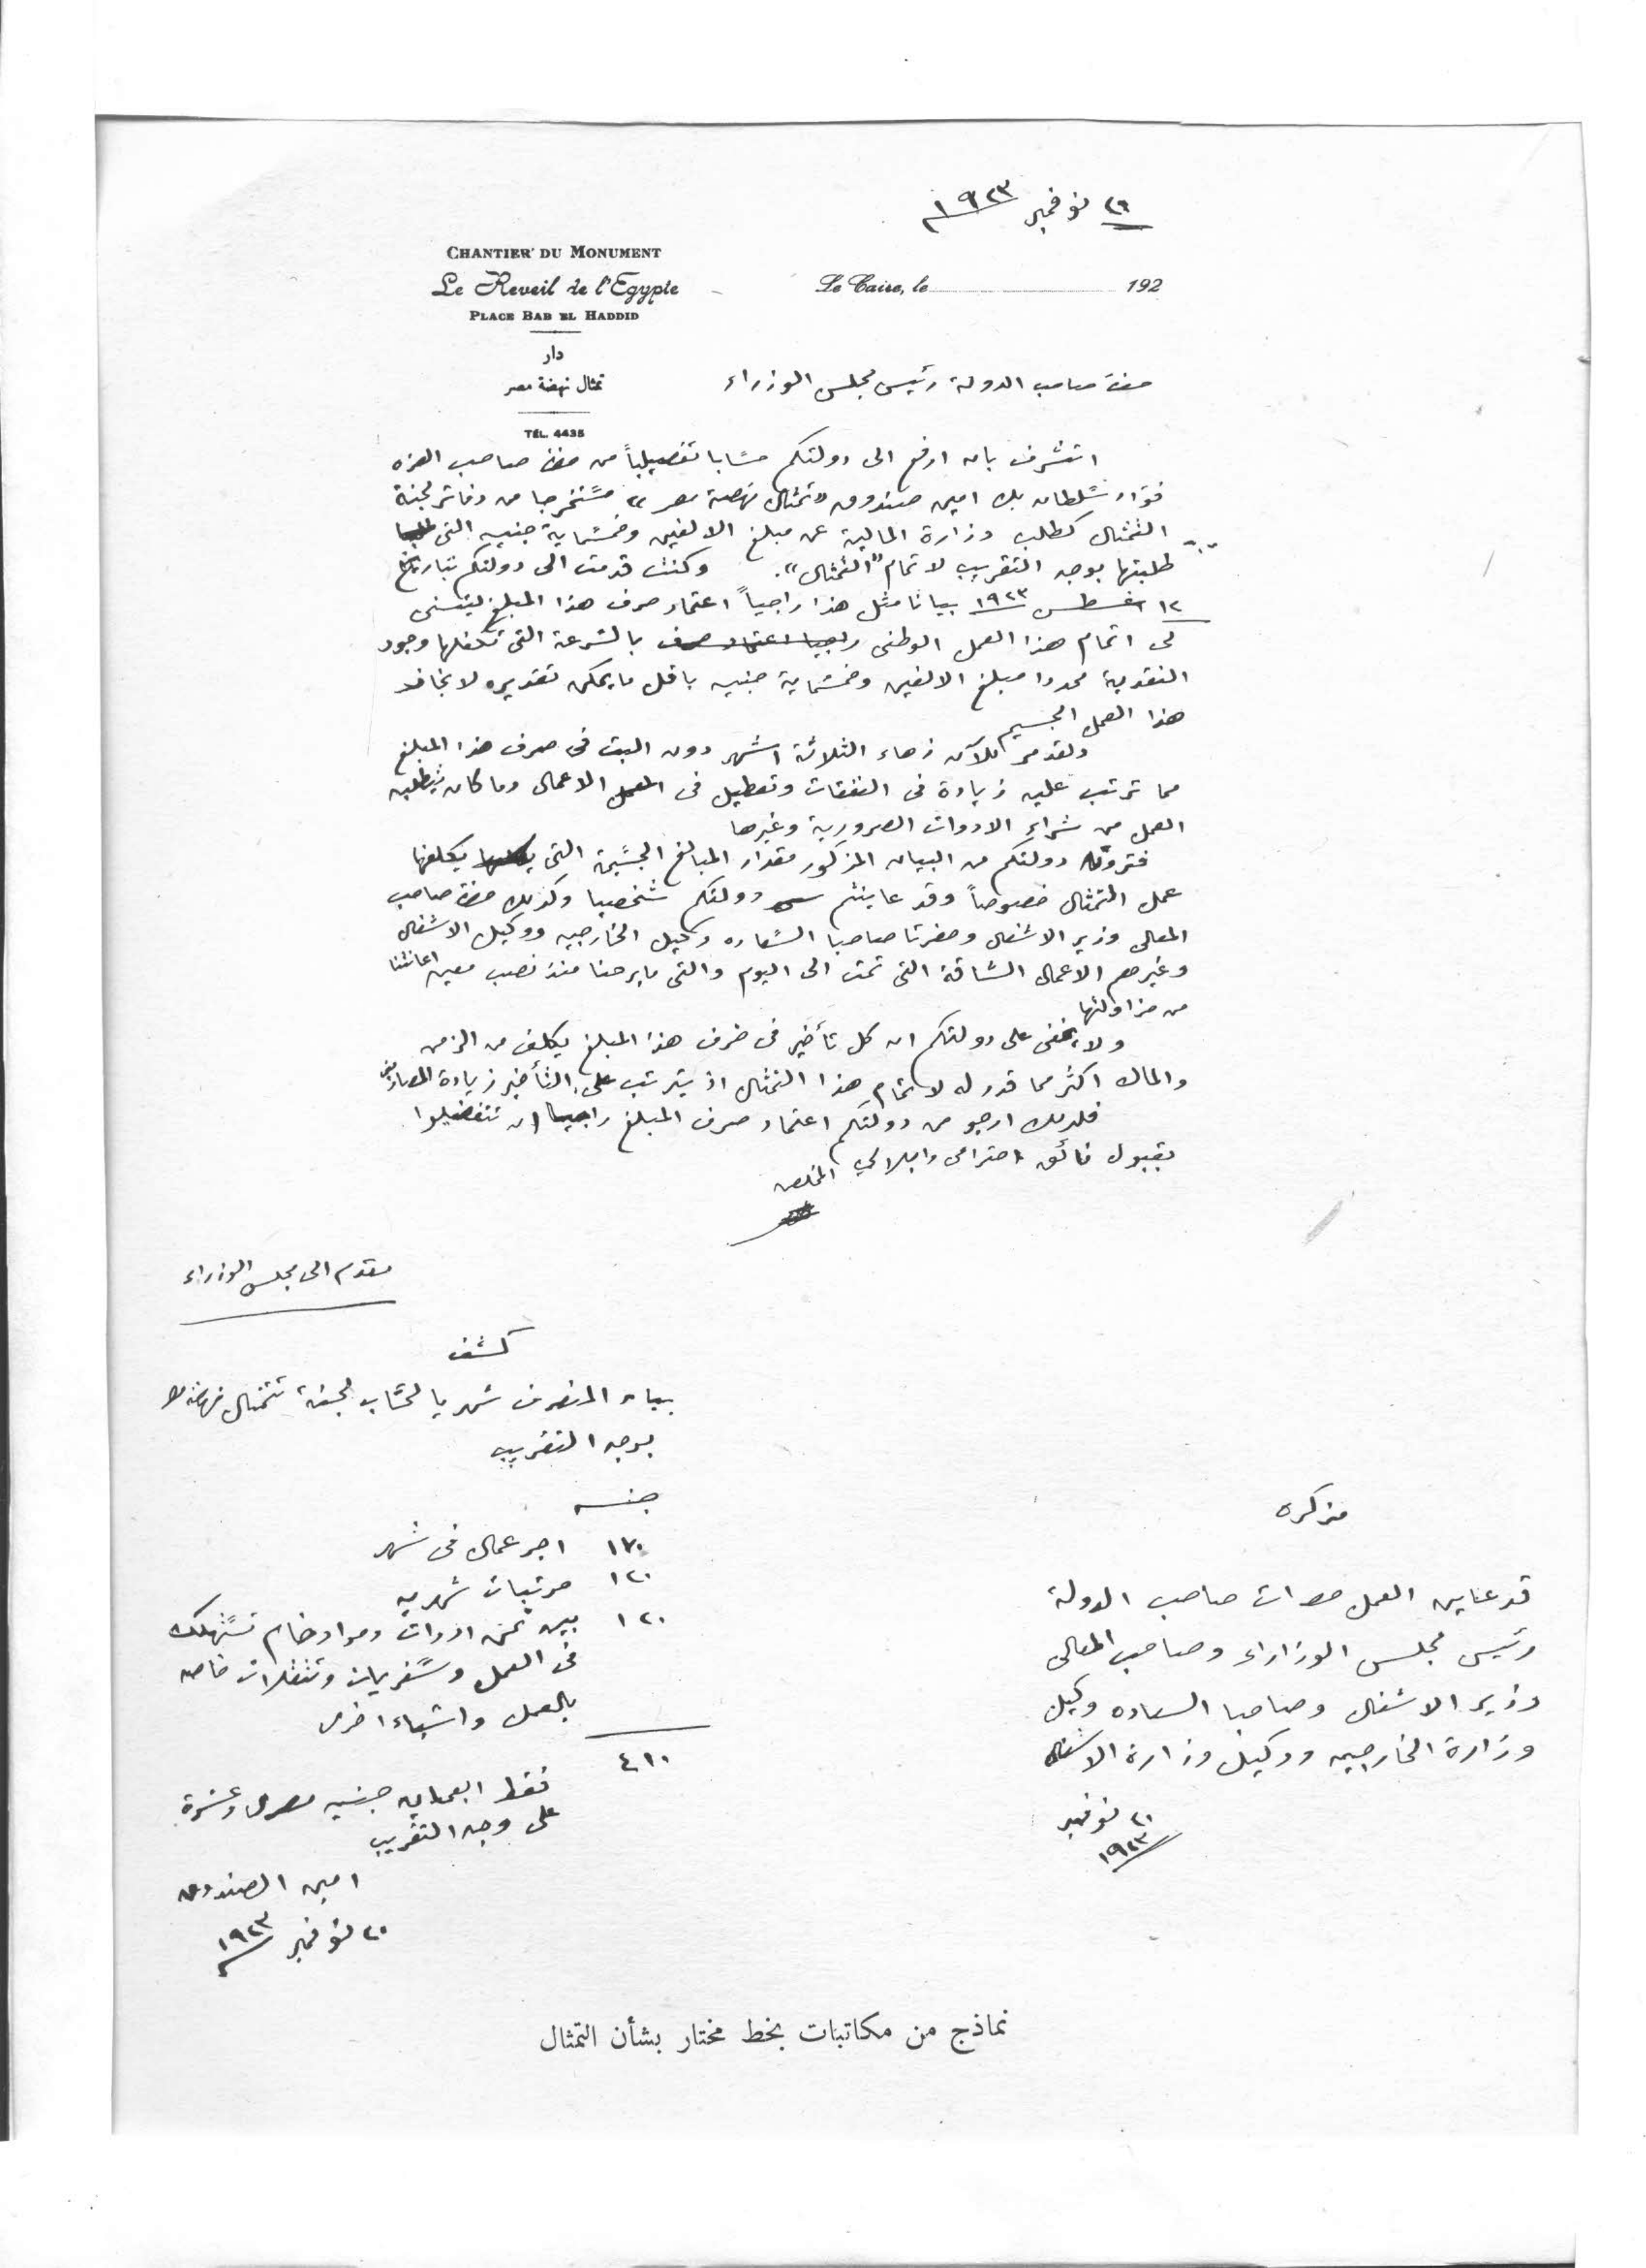 ٢١ نوفمبر ١٩٢٣
CHANTIER DU MONUMENT
Le Reveil de l'Egypte
PLACE BAB EL HADDID
Le Caire, le 192
دار
تمثال نهضة مصر
TÉL. 4435
حضرة صاحب الدولة رئيس مجلس الوزراء
اتشرف بان ارفع الى دولتكم حسابا تفصيلياً من حضرة صاحب العزه
فؤاد سلطان بك امين صندوق «تمثال نهضة مصر» مستخرجا من دفاتر لجنة
التمثال كطلب وزارة المالية عن مبلغ الالفين وخمسماية جنيه التى
طلبتها بوجه التقريب لاتمام "التمثال". وكنت قدمت الى دولتكم بتاريخ
١٢ اغسطس ١٩٢٣ بيانا مثل هذا راجياً اعتماد صرف هذا المبلغ ليتسنى
لى اتمام هذا العمل الوطنى راجيا اعتماد صرف بالسرعة التى تكفلها وجود
النقدية محددا مبلغ الالفين وخمسماية جنيه باقل ما يمكن تقديره لانجاز
هذا العمل الجسيم
ولقد مر للآن زهاء الثلاثة اشهر دون البت فى صرف هذا المبلغ
مما ترتب عليه زيادة فى النفقات وتعطيل فى العمل الاعمال وما كان يتطلبه
العمل من شراء الادوات الضرورية وغيرها
فترون دولتكم من البيان المذكور مقدار المبالغ الجسيمة التى يكلفها
عمل التمثال خصوصاً وقد عاينتم دولتكم شخصيا وكذلك حضرة صاحب
المعالى وزير الاشغال وحضرتا صاحبا السعاده وكيل الخارجيه ووكيل الاشغال
وغيرهم الاعمال الشاقة التى تمت الى اليوم والتى ما برحنا منذ نصب معين اعاننا
من مزاولتها
ولا يخفى على دولتكم ان كل تأخير فى صرف هذا المبلغ يكلف من الزمن
والمال اكثر مما قدر له لاتمام هذا التمثال اذ يترتب على التأخير زيادة المصاريف
فلذلك ارجو من دولتكم اعتماد صرف المبلغ راجيا ان تتفضلوا
بقبول فائق احترامى واجلالي المخلص
مقدم الى مجلس الوزراء
كشف
بيان المنصرف شهريا لحساب لجنة تمثال نهضة مصر
بوجه التقريب
جنيه
١٧٠ اجر عمال فى شهر
١٢٠ مرتبات شهريه
١٢٠ بين ثمن ادوات ومواد خام تستهلك
فى العمل وسفريات وتنقلات خاصه
بالعمل واشياء اخرى
٤١٠
فقط اربعماية جنيه مصرى وعشرة
على وجه التقريب
امين الصندوق
٢٠ نوفمبر ١٩٢٣
مذكره
قد عاين العمل حضرات صاحب الدولة
رئيس مجلس الوزاراء وصاحب المعالى
وزير الاشغال وصاحبا السعاده وكيل
وزارة الخارجيه ووكيل وزارة الاشغال
٢١ نوفمبر
١٩٢٣
نماذج من مكاتبات بخط مختار بشأن التمثال